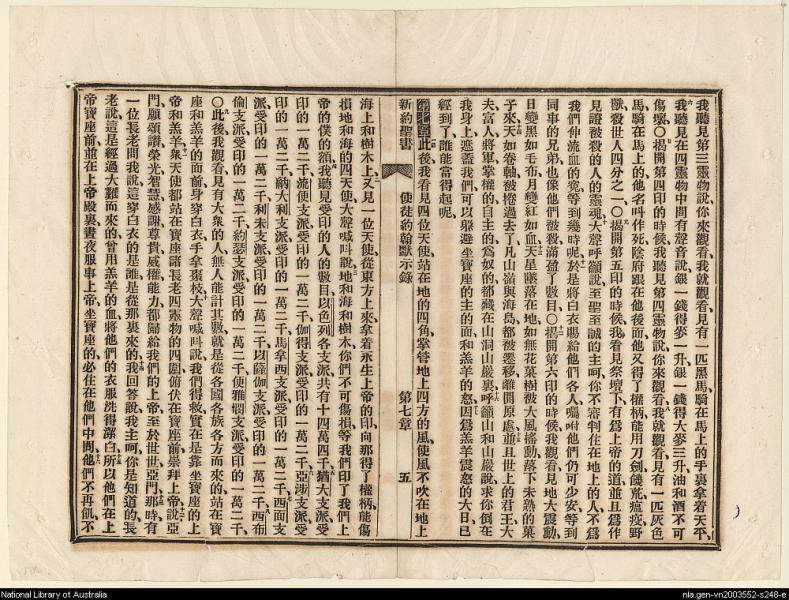 我聽見第三靈物說你來觀看我就觀看見有一匹黑馬騎在馬上的手裏拿着天平
我聽見在四靈物中間有聲音說銀一錢得麥一升銀一錢得大麥三升油和酒不可
傷壞〇揭開第四印的時候我聽見第四靈物說你來觀看我就觀看見有一匹灰色
馬騎在馬上的他名叫作死陰府跟在他後面他又得了權柄能用刀劍饑荒瘟疫野
獸殺世人四分之一〇揭開第五印的時候我看見祭壇下有爲上帝的道並且爲作
見證被殺的人的靈魂大聲呼籲說至聖至誠的主呵你不審判住在地上的人不爲
我們伸流血的寃等到幾時呢於是將白衣賜給他們各人囑咐他們仍可少安等到
同事的兄弟也像他們被殺滿盈了數目〇揭開第六印的時候我觀看見地大震動
日變黑如毛布月變紅如血天星墜落在地如無花菓樹被大風搖動落下未熟的菓
子來天如卷軸被捲過去了凡山嶺與海島都被遷移離開原處並且世上的君王大
夫富人將軍掌權的自主的爲奴的都藏在山洞山巖裏呼籲山和山巖說求你倒在
我身上遮蓋我們可以躱避坐寶座的主的面和羔羊的怒因爲羔羊震怒的大日已
經到了誰能當得起呢
第七章此後我看見四位天使站在地的四角掌管地上四方的風使風不吹在地上
新約聖書 使徒約翰默示錄 第七章 五
海上和樹木上又見一位天使從東方上來拿着永生上帝的印向那得了權柄能傷
損地和海的四天使大聲喊叫說地和海和樹木你們不可傷損等我們印了我們上
帝的僕的額我聽見受印的人的數目以色列各支派共有十四萬四千猶大支派受
印的一萬二千流便支派受印的一萬二千伽得支派受印的一萬二千亞涉支派受
印的一萬二千納大利支派受印的一萬二千馬拿西支派受印的一萬二千西面支
派受印的一萬二千利未支派受印的一萬二千以薩伽支派受印的一萬二千西布
倫支派受印的一萬二千約瑟支派受印的一萬二千便雅憫支派受印的一萬二千
〇此後我觀看見有大衆的人無人能計其數就是從各國各族各方而來的站在寶
座和羔羊的面前身穿白衣手拿棗枝大聲喊叫說我們得救實在是靠坐寶座的上
帝和羔羊衆天使都站在寶座諸長老四靈物的四圍俯伏在寶座前崇拜上帝說亞
門願頌讚榮光智慧感謝尊貴威權能力都歸給我們的上帝至於世世亞門那時有
一位長老問我說這穿白衣的是誰是從那裏來的我回答說我主呵你是知道的長
老說這是經過大難而來的曾用羔羊的血將他們的衣服洗得潔白所以他們在上
帝寶座前並在上帝殿裏晝夜服事上帝坐寶座的必住在他們中間他們不再飢不
National Library of Australia
nla.gen-vn2003552-s248-e